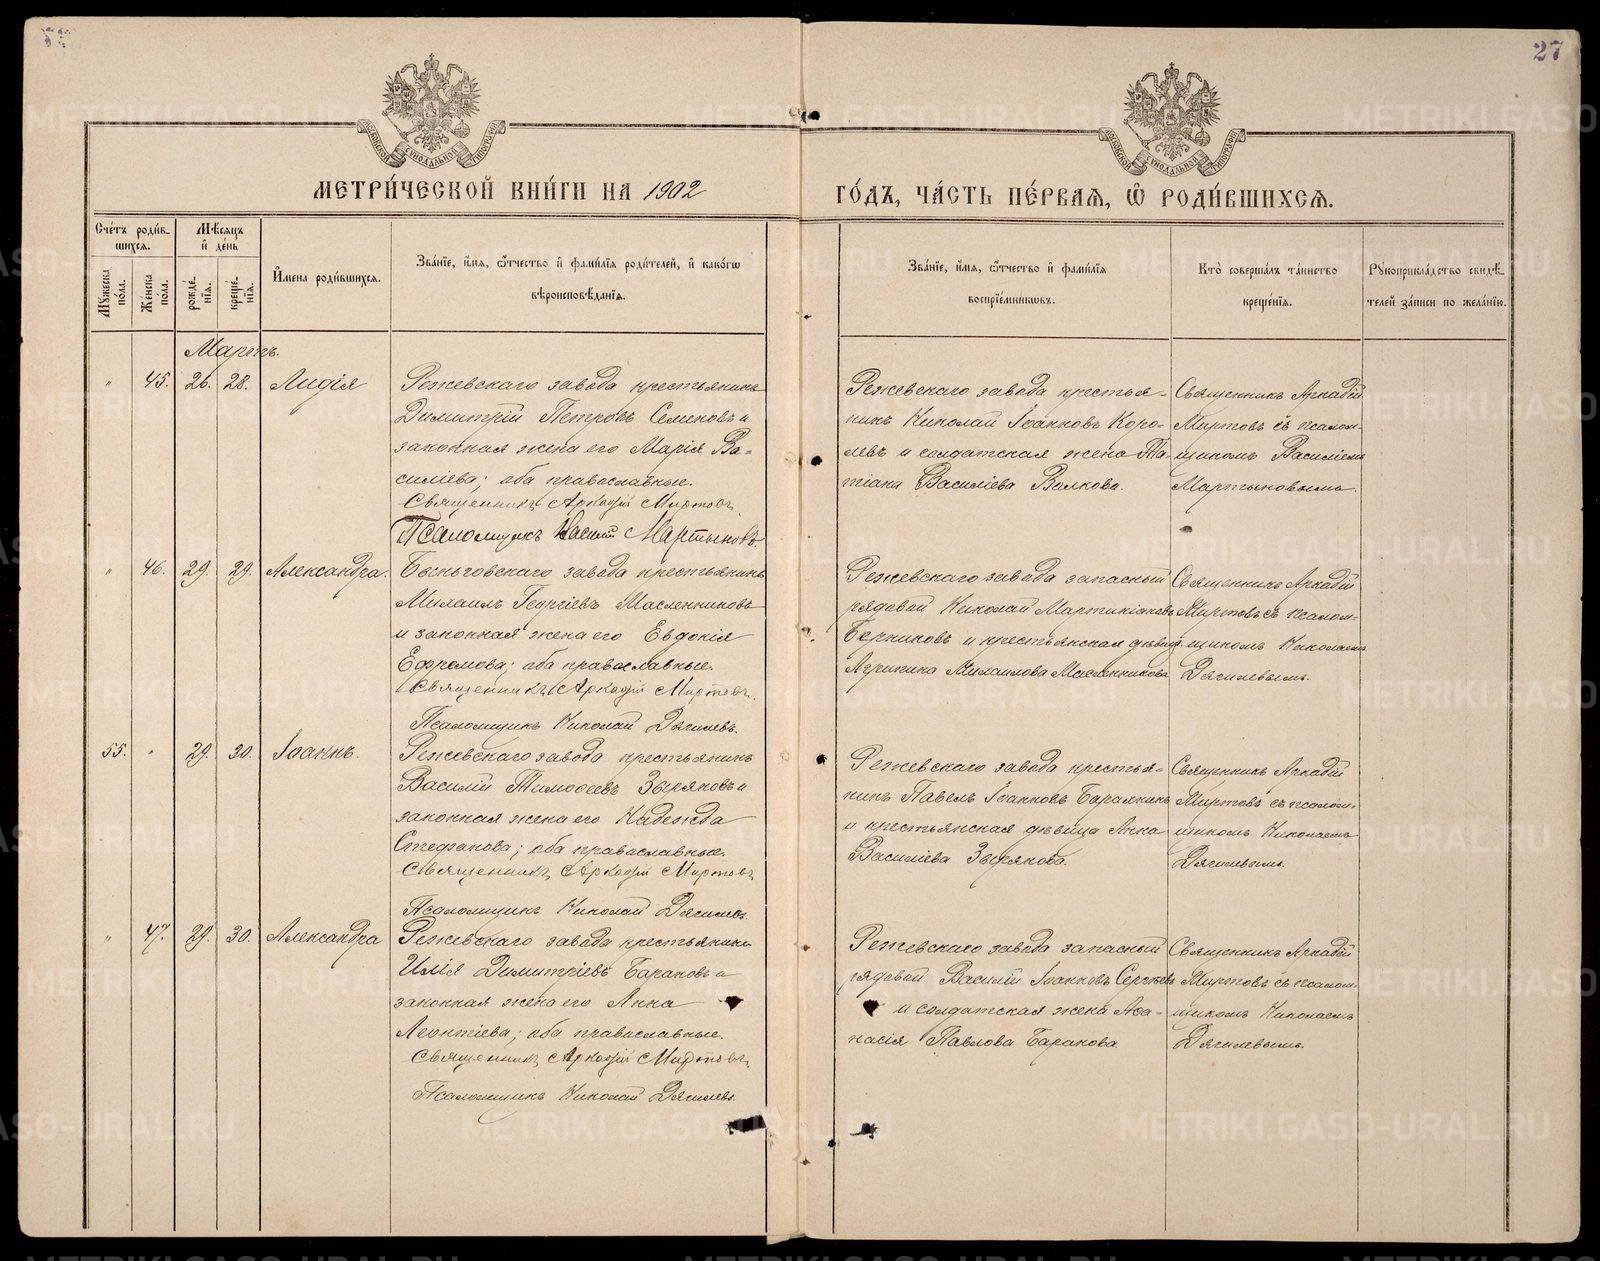 27
МОСКОВСКОЙ СѴНОДАЛЬНОЙ ТИПОГРАФІИ
МОСКОВСКОЙ СѴНОДАЛЬНОЙ ТИПОГРАФІИ
МЕТРИ́ЧЕСКОЙ КНИ́ГИ НА 1902
ГО́ДЪ, ЧА́СТЬ ПЕ́РВАѦ, Ѽ РОДИ́ВШИХСѦ.
Сче́тъ роди́в-
шихсѧ.
Мꙋжеска по́ла.
Же́нска по́ла.
Мѣ́сѧцъ
и҆ де́нь
рожде́-
нїѧ.
креще́-
нїѧ.
И҆мена роди́вшихсѧ.
Зва́нїе, и҆́мѧ, ѻ҆́тчество и҆ фами́лїѧ роди́телей, и҆ како́гѡ
вѣроисповѣ́данїѧ.
Зва́нїе, и҆́мѧ, ѻ҆́тчество и҆ фами́лїѧ
воспрїе́мникѡвъ.
Кто̀ соверша́лъ та́инство
креще́нїѧ.
Рꙋкоприкла́дство свидѣ́-
телей за́писи по жела́нїю.
Мартъ.
" 45. 26. 28. Лидія
Режевскаго завода крестьянинъ
Димитрій Петровъ Семеновъ и
законная жена его Марія Ва-
силіева; оба православные.
Священникъ Аркадій Миртовъ
Псаломщикъ Василій Мартыновъ
Режевскаго завода крестья-
нинъ Николай Іоанновъ Коро-
левъ и солдатская жена Та-
тіана Василіева Волкова.
Священникъ Аркадій
Миртовъ съ псалом-
щикомъ Василіемъ
Мартыновымъ.
" 46. 29. 29. Александра.
Быньговскаго завода крестьянинъ
Михаилъ Георгіевъ Масленниковъ
и законная жена его Евдокія
Ефремова; оба православные.
Священникъ Аркадій Миртовъ
Псаломщикъ Николай Дягилевъ.
Режевскаго завода запасный
рядовой Николай Мартиніановъ
Берниковъ и крестьянская дѣвица
Агрипина Михаилова Масленникова
Священникъ Аркадій
Миртовъ съ псалом-
щикомъ Николаемъ
Дягилевымъ.
55. " 29. 30. Іоаннъ.
Режевскаго завода крестьянинъ
Василій Тимоѳеевъ Зыряновъ и
законная жена его Надежда
Стефанова; оба православные.
Священникъ Аркадій Миртовъ
Псаломщикъ Николай Дягилевъ.
Режевскаго завода крестья-
нинъ Павелъ Іоанновъ
и крестьянская дѣвица Анна
Василіева Зырянова.
Священникъ Аркадій
Миртовъ съ псалом-
щикомъ Николаемъ
Дягилевымъ.
" 47. 29. 30. Александра
Режевскаго завода крестьянинъ
Илія Димитріевъ Барановъ и
законная жена его Анна
Леонтіева; оба православные.
Священникъ Аркадій Миртовъ
Псаломщикъ Николай Дягилевъ.
Режевскаго завода запасный
рядовой Василій Іоанновъ Сергѣевъ
и солдатская жена Аѳа-
насія Павлова Баранова
Священникъ Аркадій
Миртовъ съ псалом-
щикомъ Николаемъ
Дягилевымъ.
METRIKI.GASO-URAL.RU